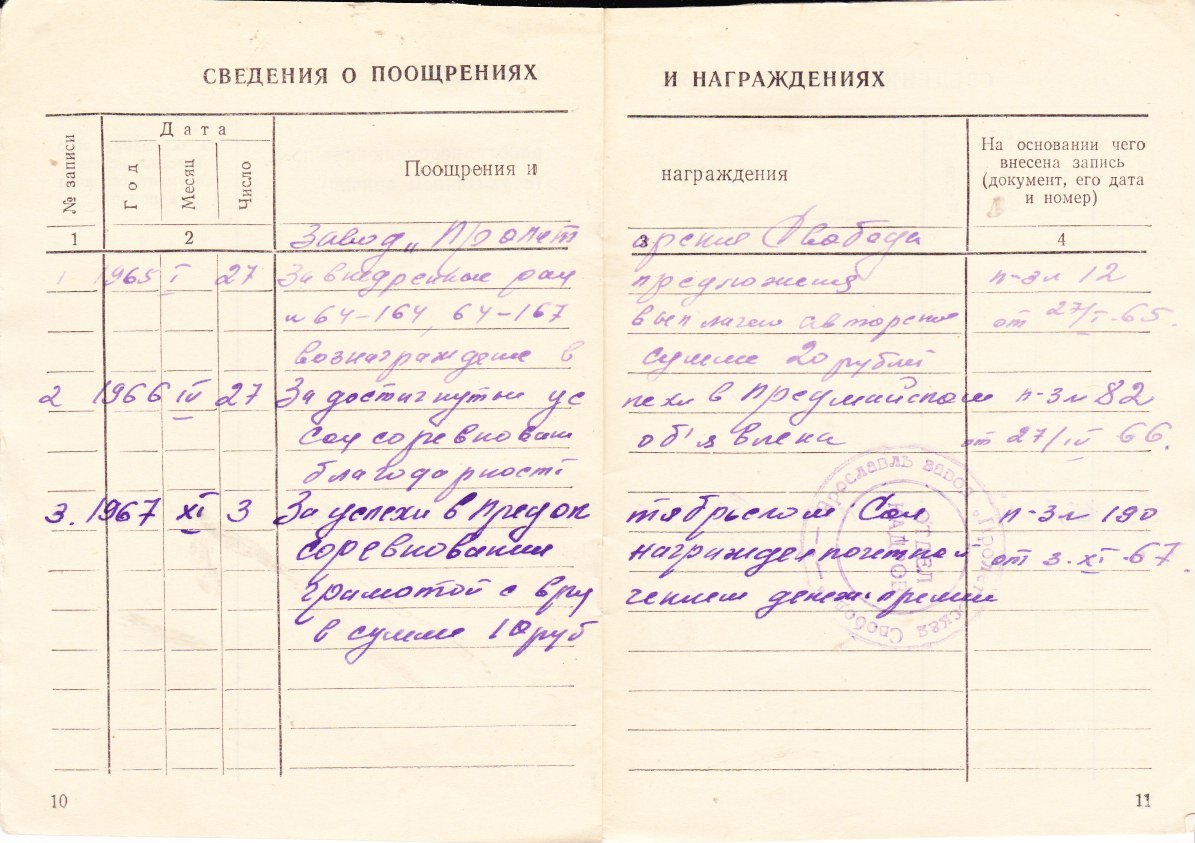 СВЕДЕНИЯ О ПООЩРЕНИЯХ И НАГРАЖДЕНИЯХ
№ записи Дата Поощрения и награждения На основании чего
внесена запись
(документ, его дата
и номер)
Год Месяц Число
1 2 3 4
Завод „Пролетарская Свобода
1 1965 I 27 За внедренные рац предложения п-з № 12
№ 64-164, 64-167 выплачено авторское от 27/I-65.
вознаграждение в сумме 20 рублей
2 1966 IV 27 За достигнутые успехи в Предмайском п-з № 82
соц соревновании об'явлена от 27/IV 66.
благодарность
3. 1967 XI 3 За успехи в Предоктябрьском Соц п-з № 190
соревновании награжден почетной от 3.XI-67.
грамотой с вручением денеж. премии
в сумме 10 руб
Ярославль завод „Пролетарская Свобода
ОТДЕЛ
КАДРОВ
10 11